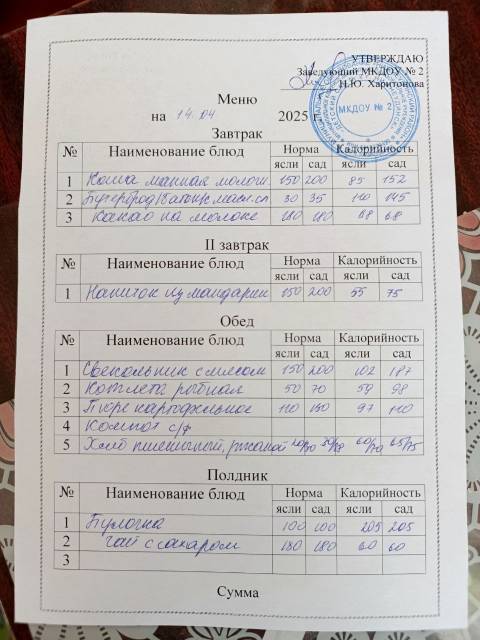 УТВЕРЖДАЮ
Заведующий МКДОУ № 2
Н.Ю. Харитонова
МКДОУ № 2
Меню
на 14.04 2025 г.
Завтрак
№ Наименование блюд Норма Калорийность
ясли сад ясли сад
1 Каша манная молочн. 150 200 85 152
2 Бутерброд 30 35 110 145
3 Какао на молоке 180 180 68 68
II завтрак
№ Наименование блюд Норма Калорийность
ясли сад ясли сад
1 Напиток из мандарин 150 200 55 75
Обед
№ Наименование блюд Норма Калорийность
ясли сад ясли сад
1 Свекольник с мясом 150 200 102 187
2 Котлета рыбная 50 70 59 98
3 Пюре картофельное 110 150 97 110
4 Компот с/ф
5 Хлеб пшеничный, ржаной
Полдник
№ Наименование блюд Норма Калорийность
ясли сад ясли сад
1 Булочка 100 100 205 205
2 Чай с сахаром 180 180 60 60
3
Сумма